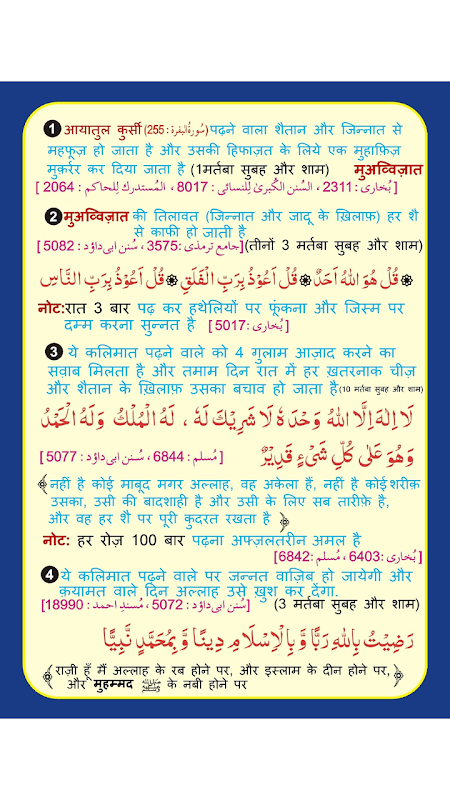 1 आयातुल कुर्सी (سُورۃُ البقرۃ : 255) पढ़ने वाला शैतान और जिन्नात से
महफूज़ हो जाता है और उसकी हिफाज़त के लिये एक मुहाफ़िज़
मुक़र्रर कर दिया जाता है (1मर्तबा सुबह और शाम) मुअव्विज़ात
[ بُخاری : 2311 ، السُنن الکُبریٰ لِلنسائی : 8017 ، المُستدرك لِلحاکم : 2064 ]
2 मुअव्विज़ात की तिलावत (जिन्नात और जादू के ख़िलाफ़) हर शै
से काफी हो जाती है
[جامع ترمذی : 3575، سُنن ابی داؤد : 5082 ] (तीनों 3 मर्तबा सुबह और शाम)
قُلْ هُوَ اللهُ اَحَدٌ قُلْ اَعُوْذُ بِرَبِّ الْفَلَقِ قُلْ اَعُوْذُ بِرَبِّ النَّاسِ
नोट:रात 3 बार पढ़ कर हथेलियों पर फूंकना और जिस्म पर
दम्म करना सुन्नत है [ بُخاری : 5017 ]
3 ये कलिमात पढ़ने वाले को 4 गुलाम आज़ाद करने का
सवाब मिलता है और तमाम दिन रात में हर ख़तरनाक चीज़
और शैतान के ख़िलाफ़ उसका बचाव हो जाता है (10 मर्तबा सुबह और शाम)
لَا اِلٰهَ اِلَّا اللهُ وَحْدَهٗ لَا شَرِيْكَ لَهٗ ، لَهُ الْمُلْكُ وَلَهُ الْحَمْدُ
وَهُوَ عَلٰى كُلِّ شَىْءٍ قَدِيْرٌ [ مُسلم : 6844 ، سُنن ابی داؤد : 5077 ]
नहीं है कोई माबूद मगर अल्लाह, वह अकेला हैं, नहीं है कोई शरीक़
उसका, उसी की बादशाही है और उसी के लिए सब तारीफ़े है,
और वह हर शै पर पूरी कुदरत रखता है
नोट: हर रोज़ 100 बार पढ़ना अफ्ज़लतरीन अमल है
[ بُخاری : 6403 ، مُسلم : 6842 ]
4 ये कलिमात पढ़ने वाले पर जन्नत वाज़िब हो जायेगी और
क़यामत वाले दिन अल्लाह उसे ख़ुश कर देंगा.
[سُنن ابی داؤد : 5072 ، مُسندِ احمد : 18990 ] (3 मर्तबा सुबह और शाम)
رَضِيْتُ بِاللهِ رَبًّا وَّ بِالْاِسْلَامِ دِيْنًا وَّ بِمُحَمَّدٍ نَّبِيًّا
राज़ी हूँ मैं अल्लाह के रब होने पर, और इस्लाम के दीन होने पर,
और मुहम्मद ﷺ के नबी होने पर